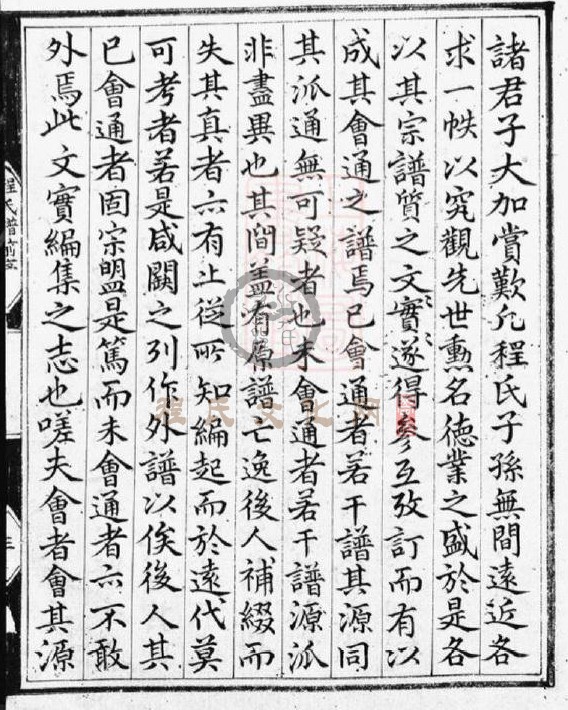 諸君子大加賞歎凢程氏子孫無間遠近各
求一帙以究觀先世勲名徳業之盛於是各
以其宗譜質之文實文實遂得參互攷訂而有以
成其會通之譜焉已會通者若干譜其源同
其派通無可疑者也未會通者若干譜源派
非盡異也其間盖有原譜亡逸後人補綴而
失其真者亦有止從所知編起而於逺代莫
可考者若是咸闕之列作外譜以俟後人其
已會通者固宗盟是篤而未會通者亦不敢
外焉此文實編集之志也嗟夫會者會其源
程氏譜前
三
程氏文化网